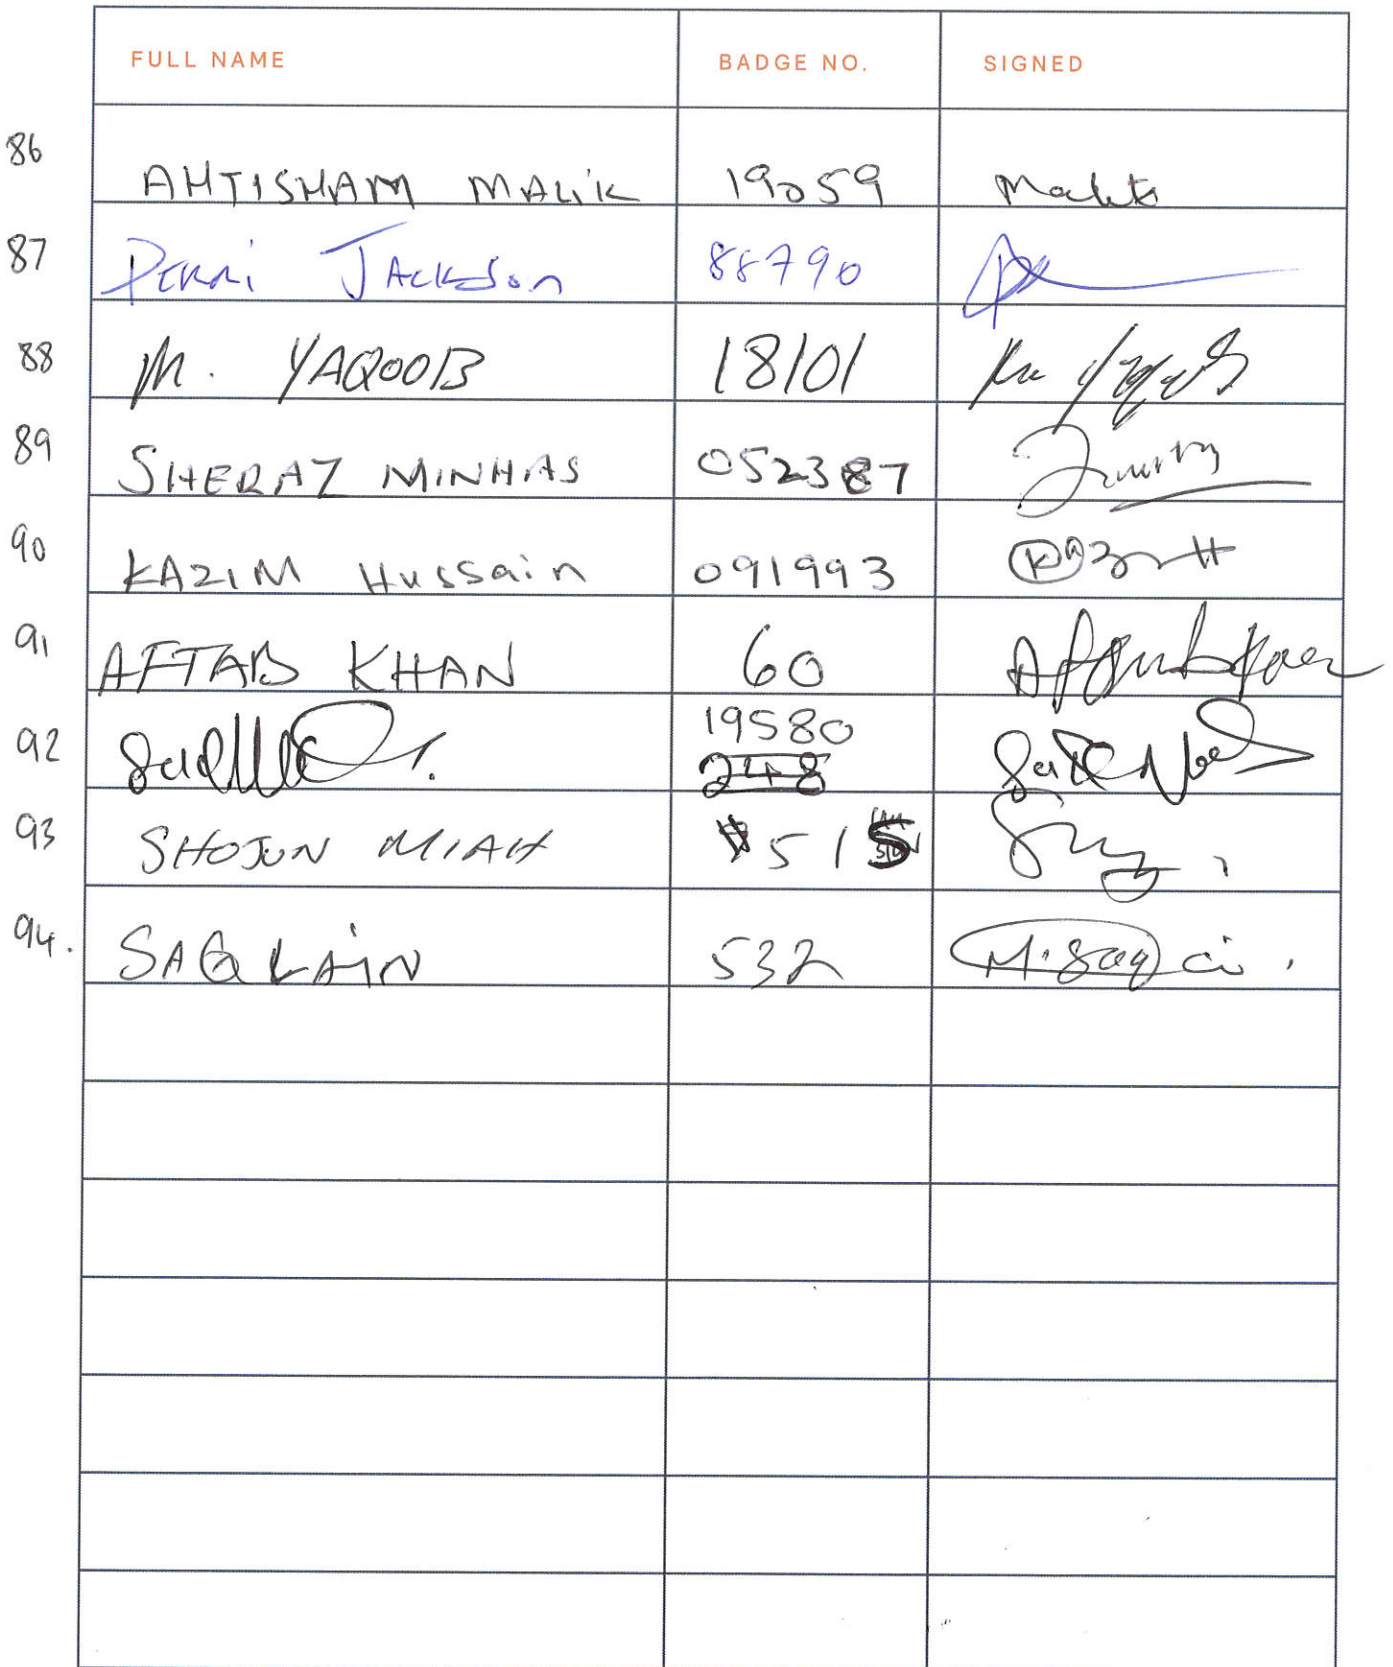 FULL NAME BADGE NO. SIGNED
86 AHTISHAM MALIK 19059 Malik
87 PERRI JACKSON 88790
88 M. YAQOOB 18101
89 SHERAZ MINHAS 052387
90 KAZIM Hussain 091993
91 AFTAB KHAN 60
92 19580
248
93 SHOJUN MIAH 515
94. SAQLAIN 532 M. Saq